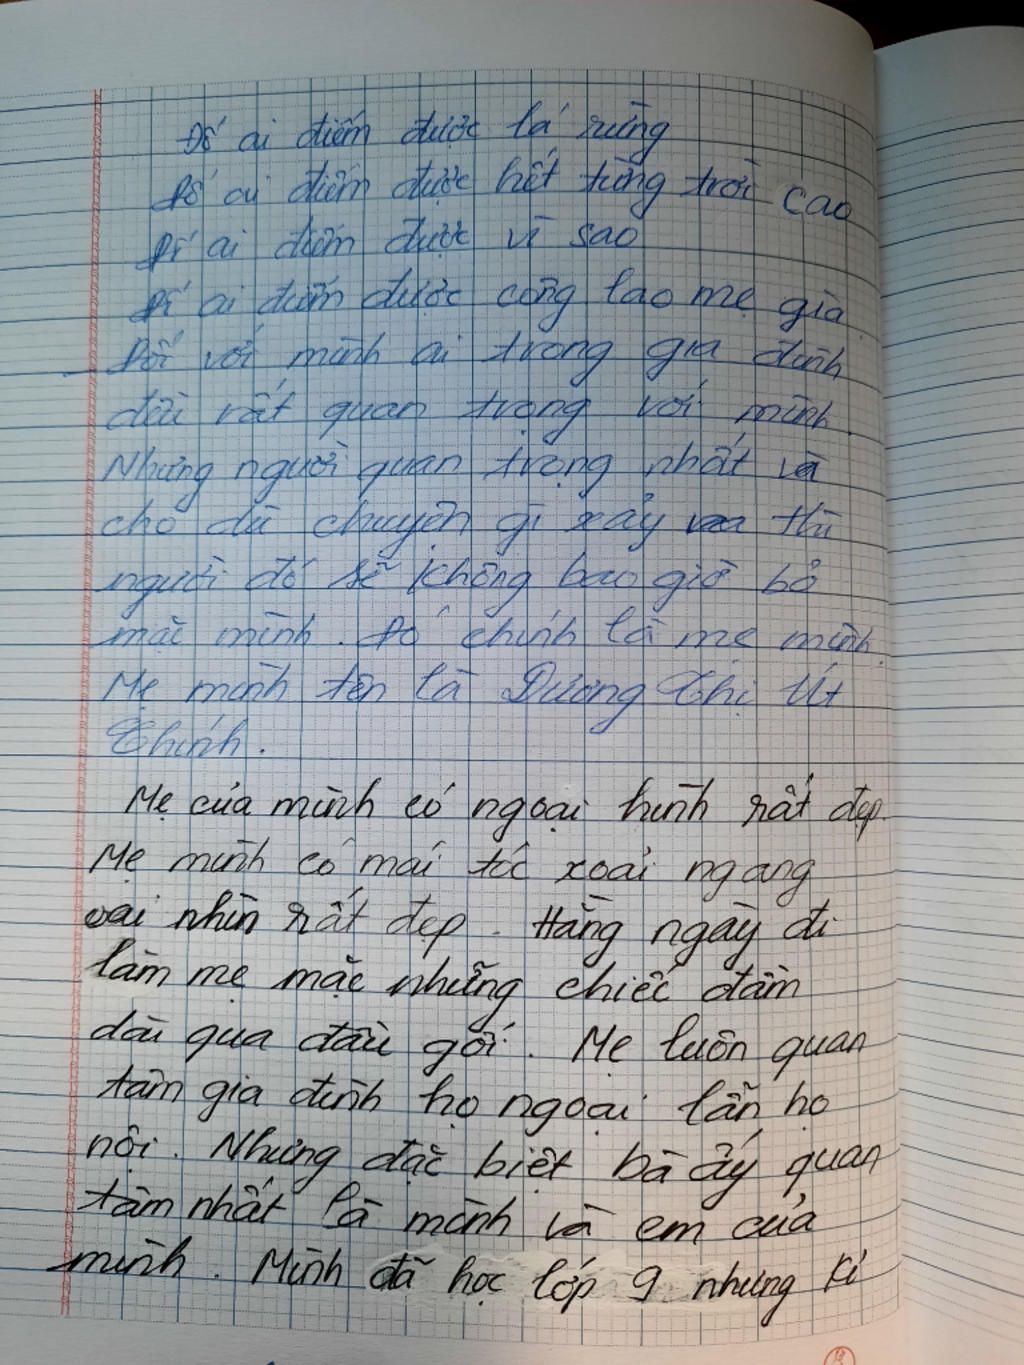 Đố ai điếm được lá rừng
Đố ai điếm được hết từng trời cao
Đố ai điếm được vì sao
Đố ai điếm được công lao mẹ già
Đối với mình ai trong gia đình
đều rất quan trọng với mình.
Nhưng người quan trọng nhất và
cho dù chuyện gì xảy ra thì
người đó sẽ không bao giờ bỏ
mặc mình. Đó chính là mẹ mình.
Mẹ mình tên là Dương Thị Út
Chính.
Mẹ của mình có ngoại hình rất đẹp.
Mẹ mình có mái tóc xoải ngang
vai nhìn rất đẹp. Hằng ngày đi
làm mẹ mặc những chiếc đầm
dài qua đầu gối. Mẹ luôn quan
tâm gia đình họ ngoại lẫn họ
nội. Nhưng đặc biệt bà ấy quan
tâm nhất là mình và em của
mình. Mình đã học lớp 9 nhưng kỉ